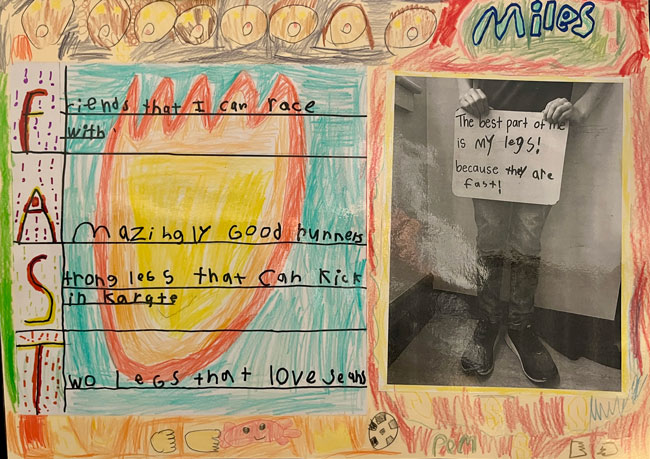 Miles
Friends that I can race
with
Amazingly Good runners
Strong legs that Can Kick
in Karate
Two Legs that love jeans
The best part of me
is my legs!
because they are
fast!